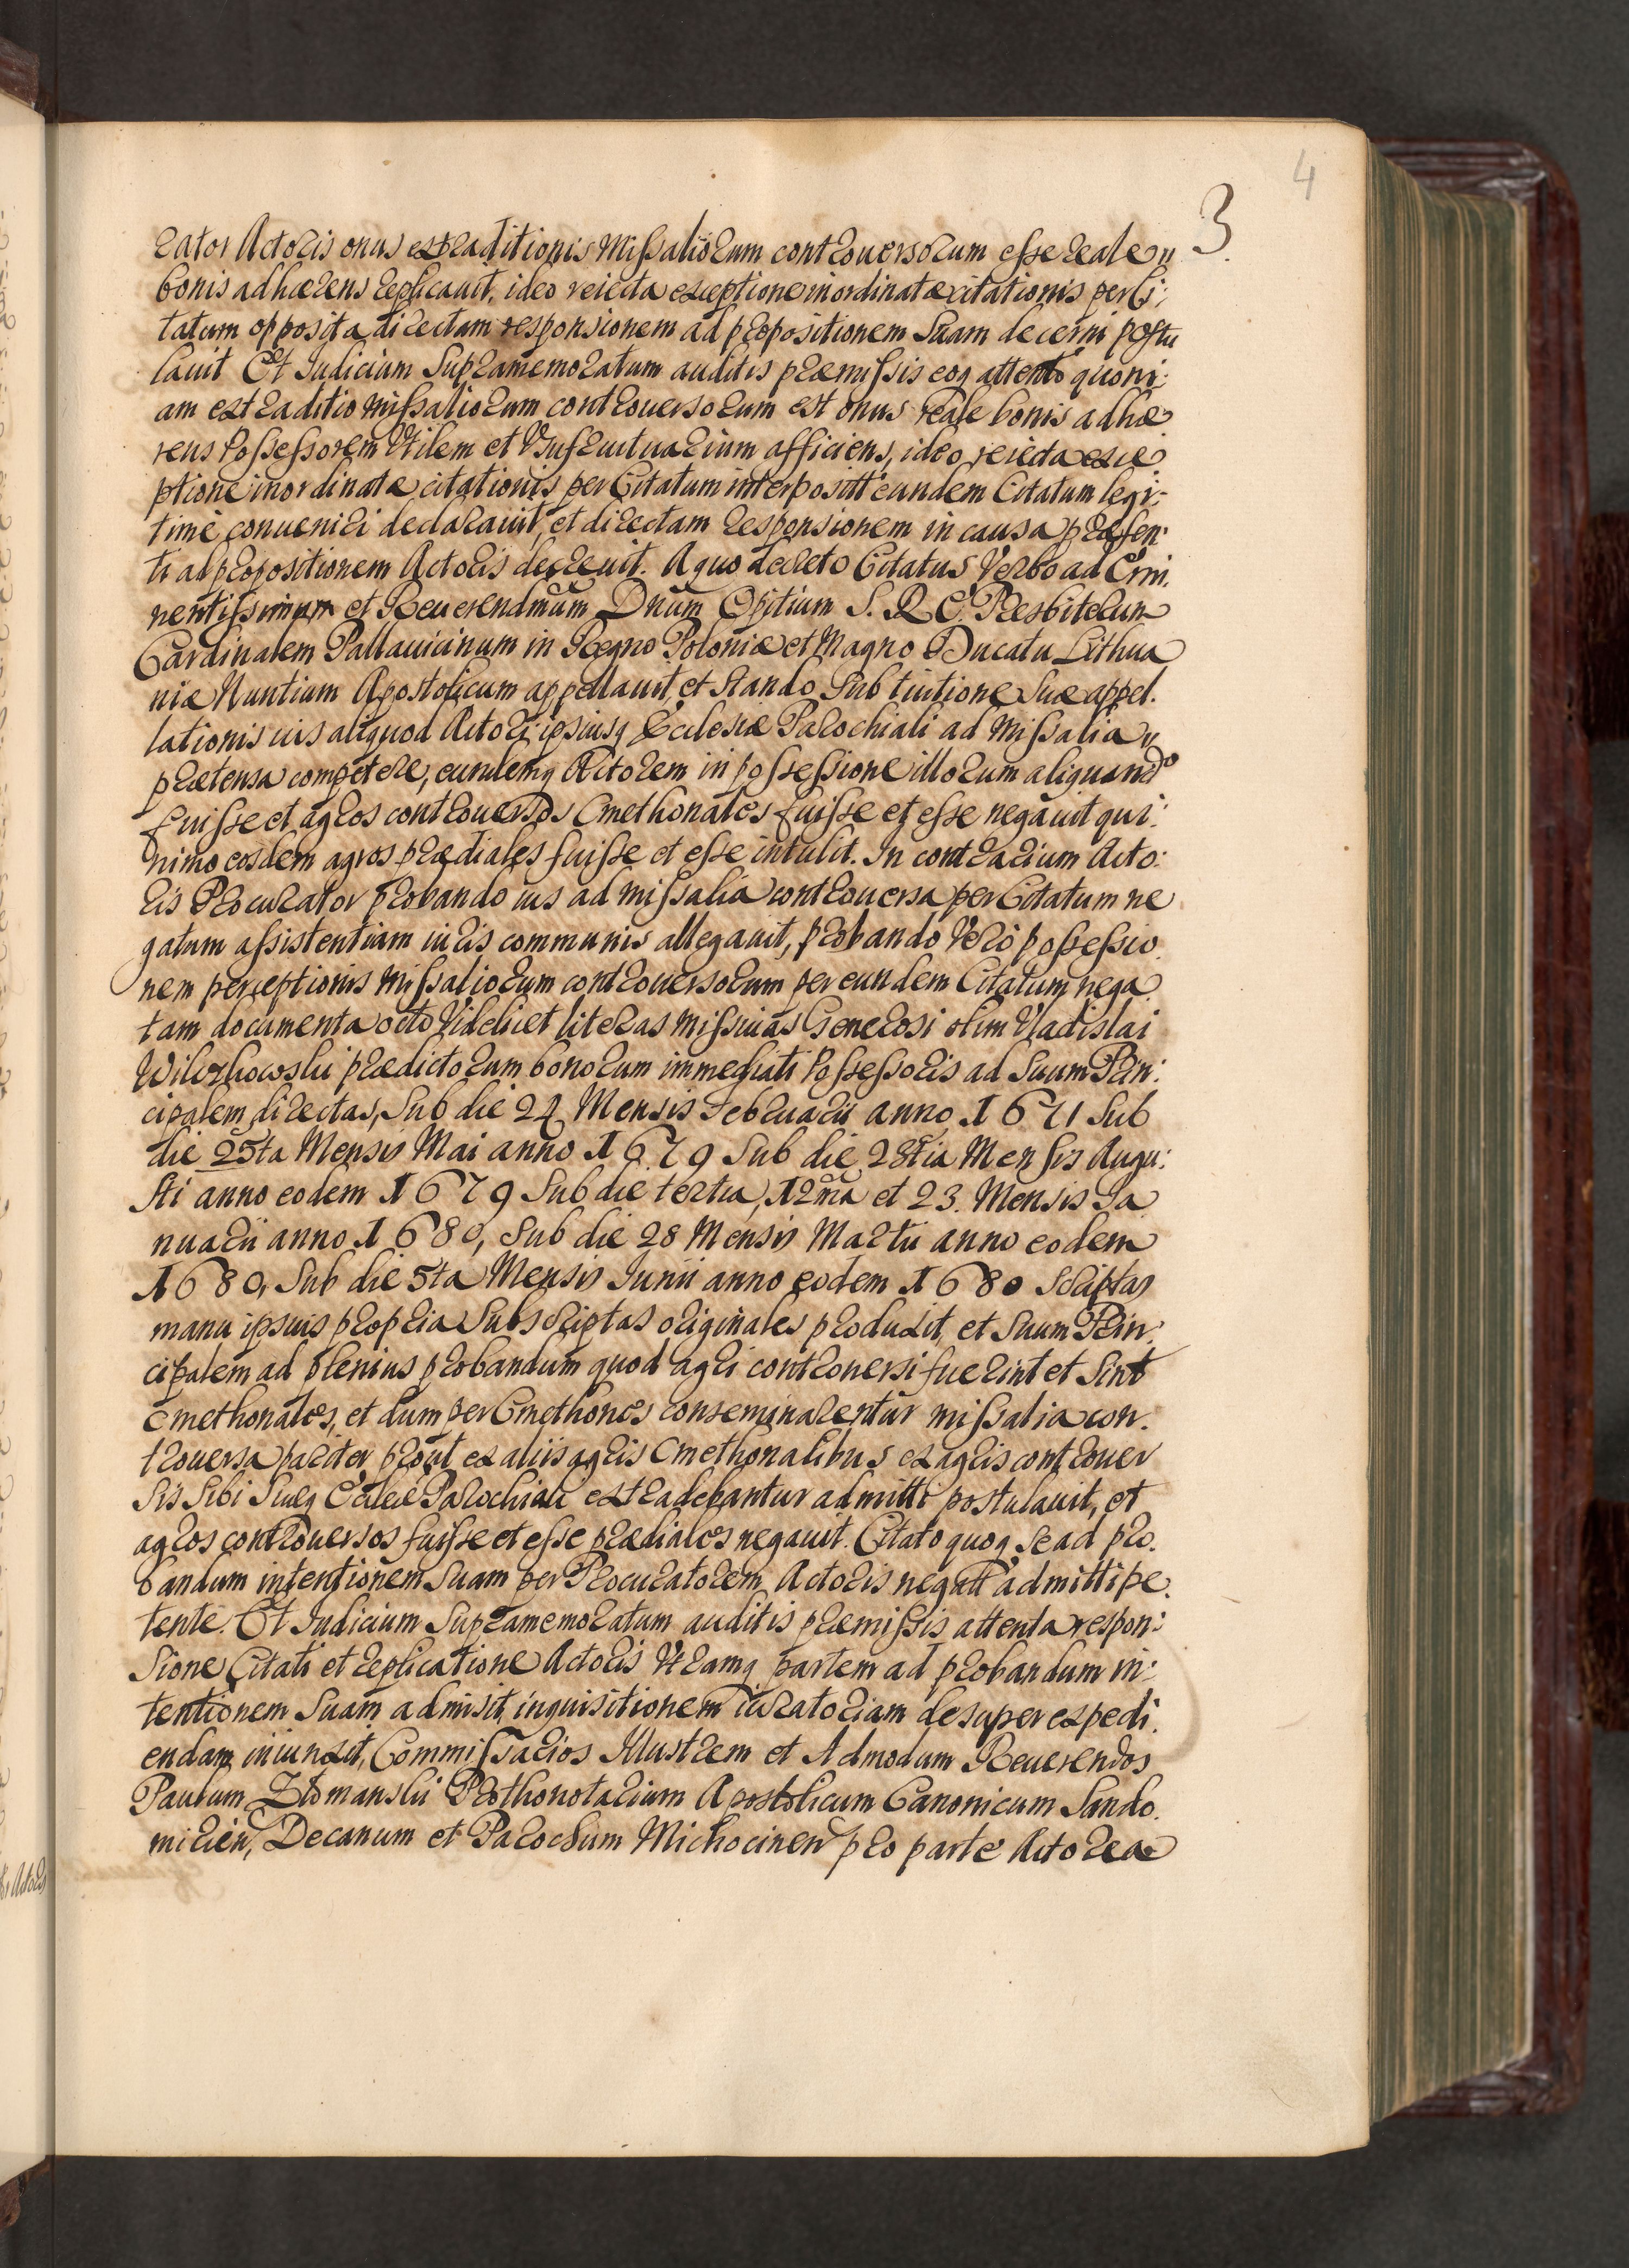 4
3
rator Actoris onus extraditionis Missaliorum controversorum esse reale
bonis adhærens replicauit, ideo reiecta exceptione inordinatæ citationis per Ci:
tatum opposita directam responsionem ad propositionem Suam decerni postu
lauit Et Iudicium Supramemoratum auditis præmissis eoq attento quoni:
am extraditio missaliorum controuersorum est onus reale bonis adhæ
rens Possessorem Vtilem et Vsufructuarium afficiens, ideo reiecta exce
ptione inordinatæ citationis per Citatum interposit̃ eundem Citatum legi:
time conueniri declarauit, et directam responsionem in causa præsen:
ti ad propositionem Actoris decreuit. A quo decreto Citatus Verbo ad Emi.
nentissimum et Reuerendm̃um Dnũm Opitium S. R. E. Presbiterum
Cardinalem Pallauicinum in Regno Poloniæ et Magno Ducatu Lithua
niæ Nuntium Apostolicum appellauit, et Stando Sub tuitione Suæ appel.
lationis ius aliquod Actori ipsiusq Ecclesiæ Parochiali ad Missalia
prætensa competere, eundemq Actorem in possessione illorum aliquando
fuisse et agros controuersos Cmethonales fuisse et esse negauit qui:
nimo eosdem agros prædiales fuisse et esse intulit. In contrarium Acto:
ris Procurator probando ius ad missalia controuersa per Citatum ne
gatum assistentiam iuris communis allegauit, probando Verò possessio
nem perceptionis missaliorum controuersorum per eundem Citatum nega
tam documenta octo Videlicet literas missiuas Generosi olim Vladislai
Wilczkowski prædictorum bonorum immediati Possessoris ad Suum Prin:
cipalem directas, Sub die 24 Mensis Februarii anno 1671 Sub
die 25ta Mensis Mai anno 1679 Sub die 28tia Mensis Augu:
sti anno eodem 1679 Sub die tertia, 12ma et 23. Mensis Ia
nuarii anno 1680, Sub die 28 Mensis Martii anno eodem
1680, Sub die 5ta Mensis Iunii anno eodem 1680 Scriptas
manu ipsius propria Subscriptas originales produxit, et Suum Prin:
cipalem ad plenius probandum quod agri controuersi fuerint et Sint
Cmethonales, et dum per Cmethones conseminarentur missalia con.
trouersa pariter prout ex aliis agris Cmethonalibus ex agris controuer
sis Sibi Suæq Ecclæ Parochiali extradebantur admitti postulauit, et
agros controuersos fuisse et esse prædiales negauit. Citato quoq Se ad pro.
bandum intentionem Suam per Procuratorem Actoris negatt̃ admitti pe.
tente. Et Iudicium Supramemoratum auditis præmissis attenta respon:
Sione Citati et replicatione Actoris Vtramq partem ad probandum in:
tentionem Suam admisit, inquisitionem iuratoriam desuper expedi.
endam iniunxit, Commissarios Illustrem et Admodum Reuerendos
Paulum Ztomanski Prothonotarium Apostolicum Canonicum Sando.
mirien, Decanum et Parochum Michocinen pro parte Actorea
Actoris